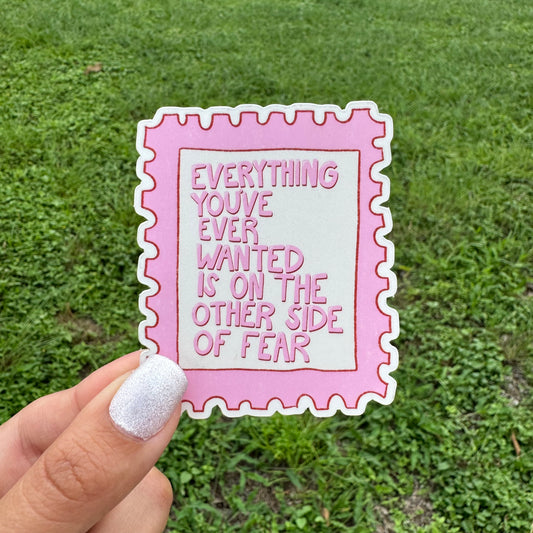 EVERYTHING
YOU'VE
EVER
WANTED
IS ON THE
OTHER SIDE
OF FEAR